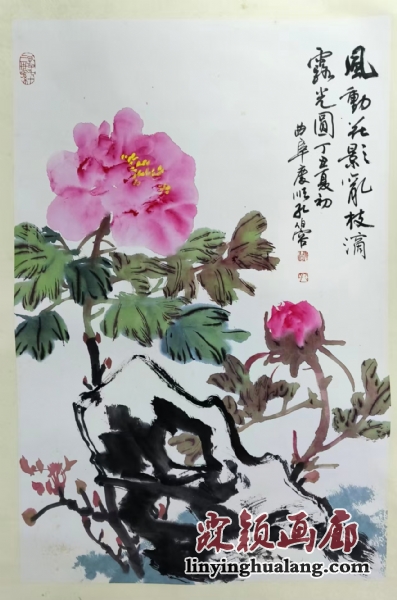 風動花影亂枝滴
露光圓丁丑夏初
曲阜
颖画廊
linyinghualang.com